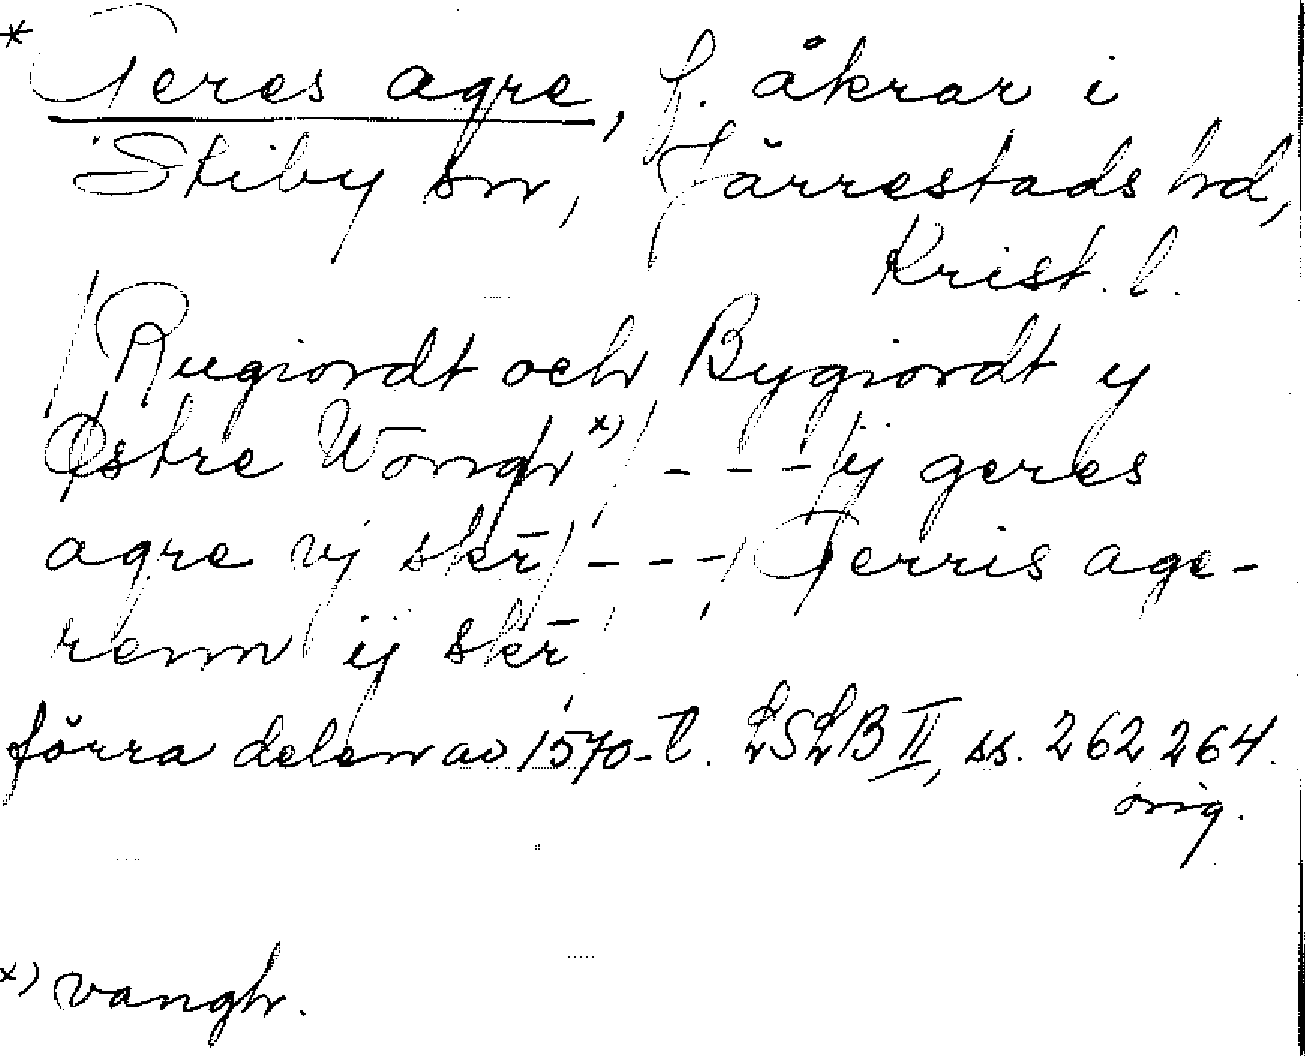 * Geres agre, f. åkrar i
Stiby sn, Järrestads hd,
Krist. l.
/Rugiordt och Bygiordt y
Østre Wongh x)/ - - - /ij geres
agre vj skr̄/ - - - / Gerris age-
renn ij skr̄
förra delen av 1570-t. LSLB II, ss. 262 264.
orig.
x) vangh.